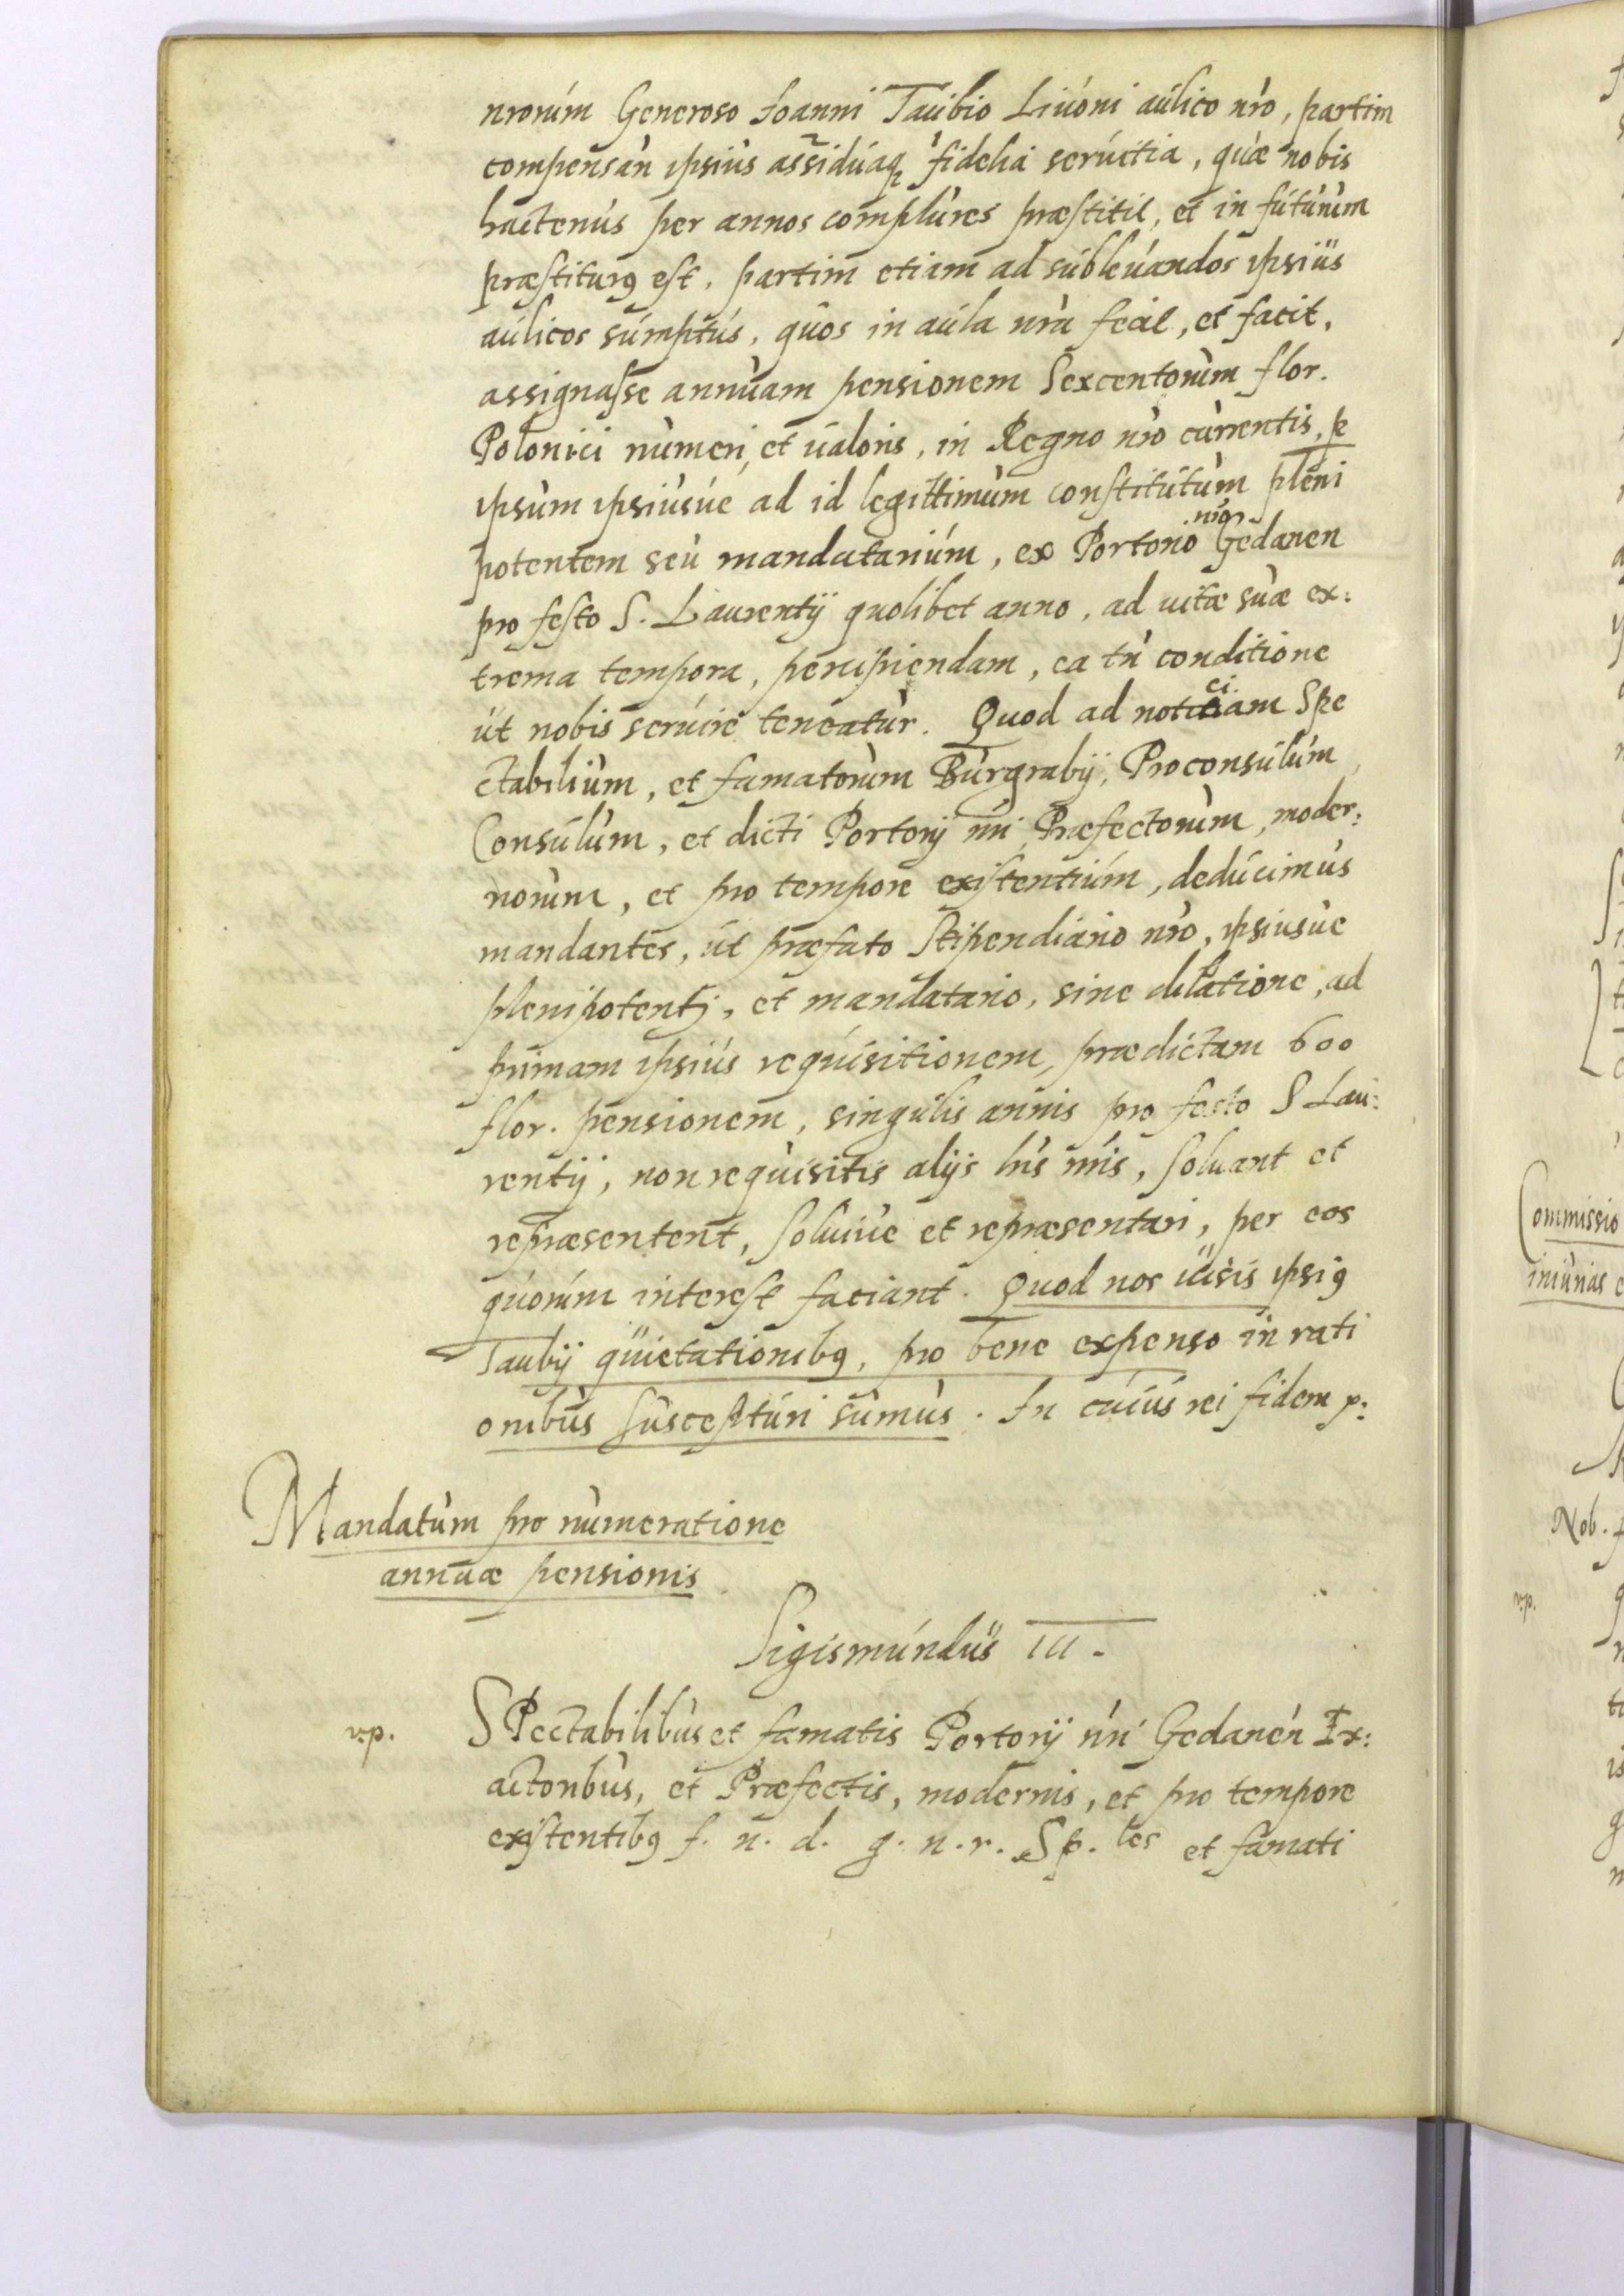 nrorum Generoso Joanni Taubio Liuoni aulico nro, partim
compensan ipsius assiduaq fidelia seruitia, quæ nobis
hactenus per annos complures præstitit, et in futurum
præstiturus est, partim etiam ad subleuandos ipsius
aulicos sumptus, quos in aula nra fecit, et facit,
assignasse annuam pensionem Sexcentorum flor.
Polonici numeri, et ualoris, in Regno nro currentis, p
ipsum ipsiusue ad id legittimum constitutum pleni
potentem seu mandatarium, ex Portorio Gedanen
pro festo S. Laurentij quolibet anno, ad uitæ suæ ex:
trema tempora, percipiendam, ea tn conditione
ut nobis seruire teneatur. Quod ad notitiam Spe
ctabilium, et famatorum Burgrabij, Proconsulum,
Consulum, et dicti Portorij nri Præfectorum, moder:
norum, et pro tempore existentium, deducimus
mandantes, ut præfato Stipendiario nro, ipsiusue
plenipotenti, et mandatario, sine dilatione, ad
primam ipsius requisitionem, prædictam 600
flor. pensionem, singulis annis pro festo S Lau:
rentij, non requisitis alijs lris nris, soluant et
repræsentent, soluiue et repræsentari, per eos
quorum interest faciant. Quod nos uisis ipsius
Taubij quietationibus, pro bene expenso in rati
onibus suscepturi sumus. In cuius rei fidem p:
Mandatum pro numeratione
annuæ pensionis
Sigismundus III.
v.p. SPectabilibus et famatis Portorij nri Gedanen Ex:
actoribus, et Præfectis, modernis, et pro tempore
existentibus f. n. d. g. n. r. Sp. les et famati
Commissio
iniurias
Nob.
v.p.